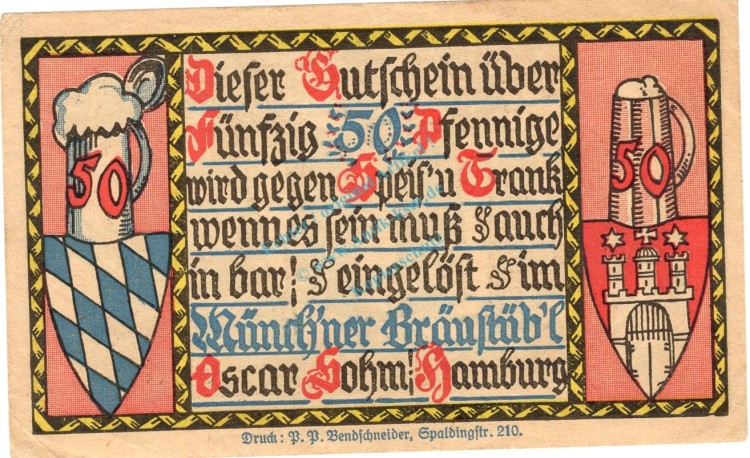 Dieser Gutschein über
Fünfzig 50 Pfennige
wird gegen Speis' u Trank
wenn es sein muß auch
in bar! eingelöst im
Münch'ner Bräustüb'l
Oscar Sohm! Hamburg
50
50
Druck: P. P. Bendschneider, Spaldingstr. 210.